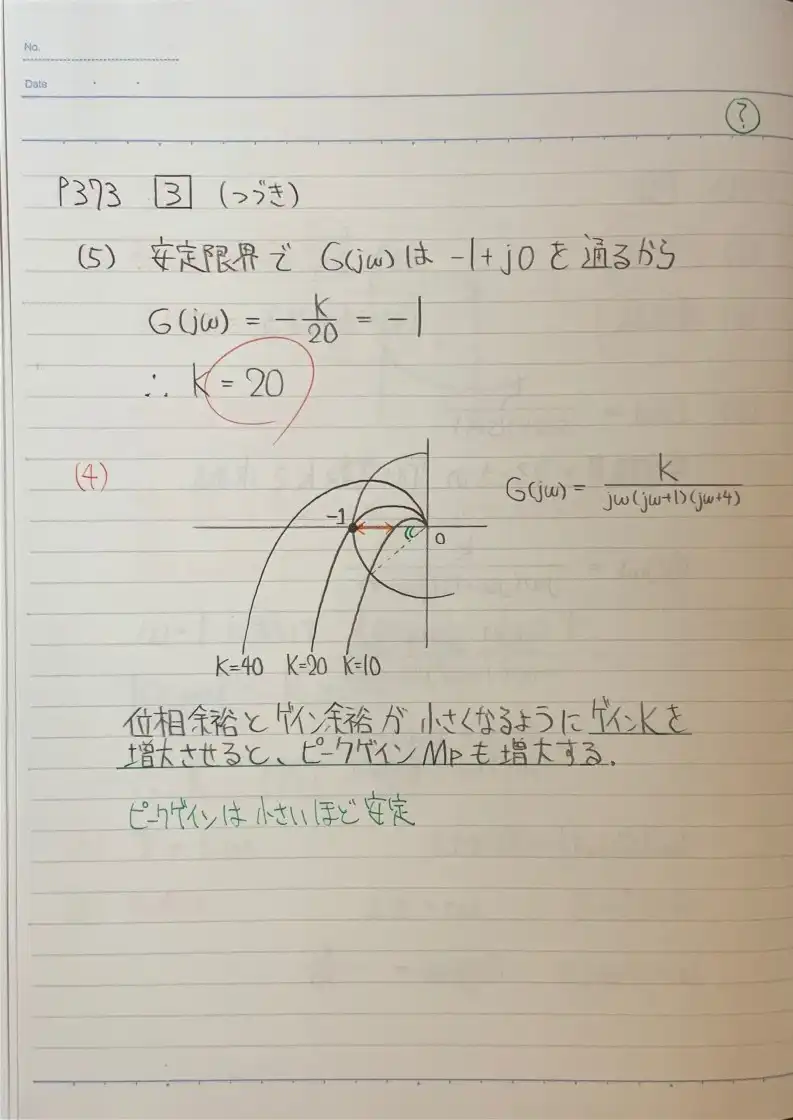 No.
Date
?
P373 3 (つづき)
(5) 安定限界で G(jω)は -1+j0 を通るから
G(jω) = - K/20 = -1
∴ K = 20
(4)
G(jω) = K/jω(jω+1)(jω+4)
-1
0
K=40 K=20 K=10
位相余裕とゲイン余裕が小さくなるようにゲインKを
増大させると、ピークゲインMpも増大する.
ピークゲインは小さいほど安定